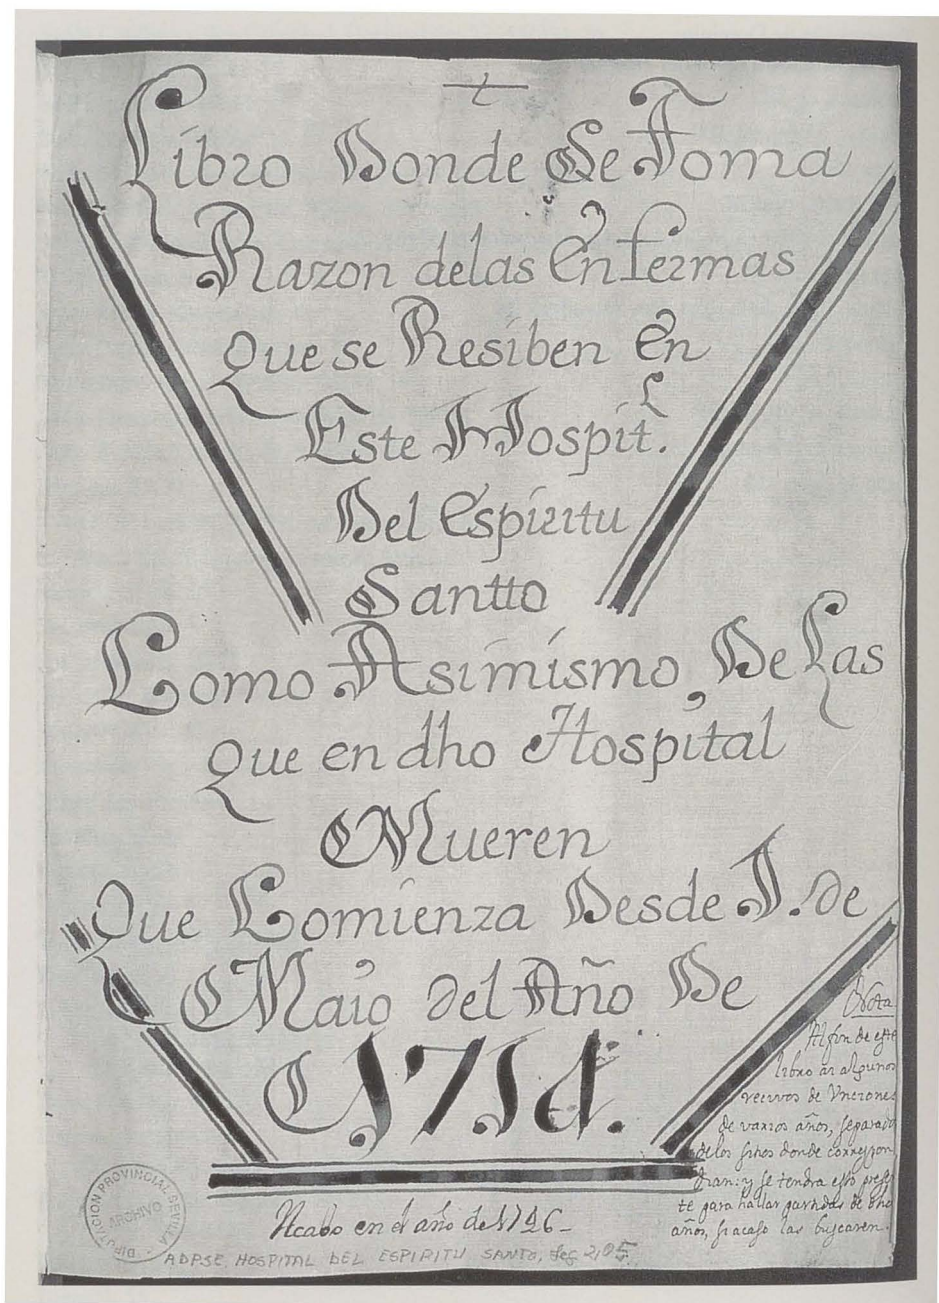 t
Libro Donde Se Toma
Razon delas Enfermas
Que se Resiben En
Este Hospit.l
Del Espiritu
Santto
Como Asimismo, De Las
Que en dho Hospital
Mueren
Que Comienza Desde I. de
Maio del Año De
1714.
Nota
Al fin de este
libro ai algunos
recivos de Vnciones
de varios años, separad
delos sitios donde correspon
dran: y se tendra esto presē
te para hallar partidas de
años, si acaso las buscaren.
Acabo en el año de 1746
DIPUTACION PROVINCIAL-SEVILLA
ARCHIVO
ADPSE, HOSPITAL DEL ESPIRITU SANTO, Leg 2,05